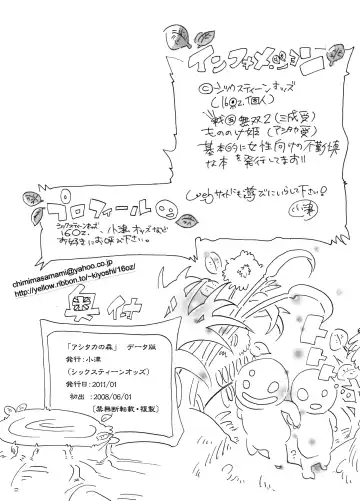 インフォメーション
©シックスティーンオッズ
(16oz.個人)
戦国無双2(三成愛)
もののけ姫(アシタカ愛)
基本的に女性向けの不動慎
な本を発行してます!!
Webサイトにも遊びにいらして下さい?
小津
プロフィール
シックスティーンオッズ
16oz.、小津オッズなど
お好きにお呼び下さい。
chimimasamami@yahoo.co.jp
http://yellow.ribbon.to/~kiyoshi/16oz/
奥付
「アシタカの森」 データ版
発行:小津
(シックスティーンオッズ)
発行日:2011/01
初出 :2008/06/01
[禁無断転載・複製]